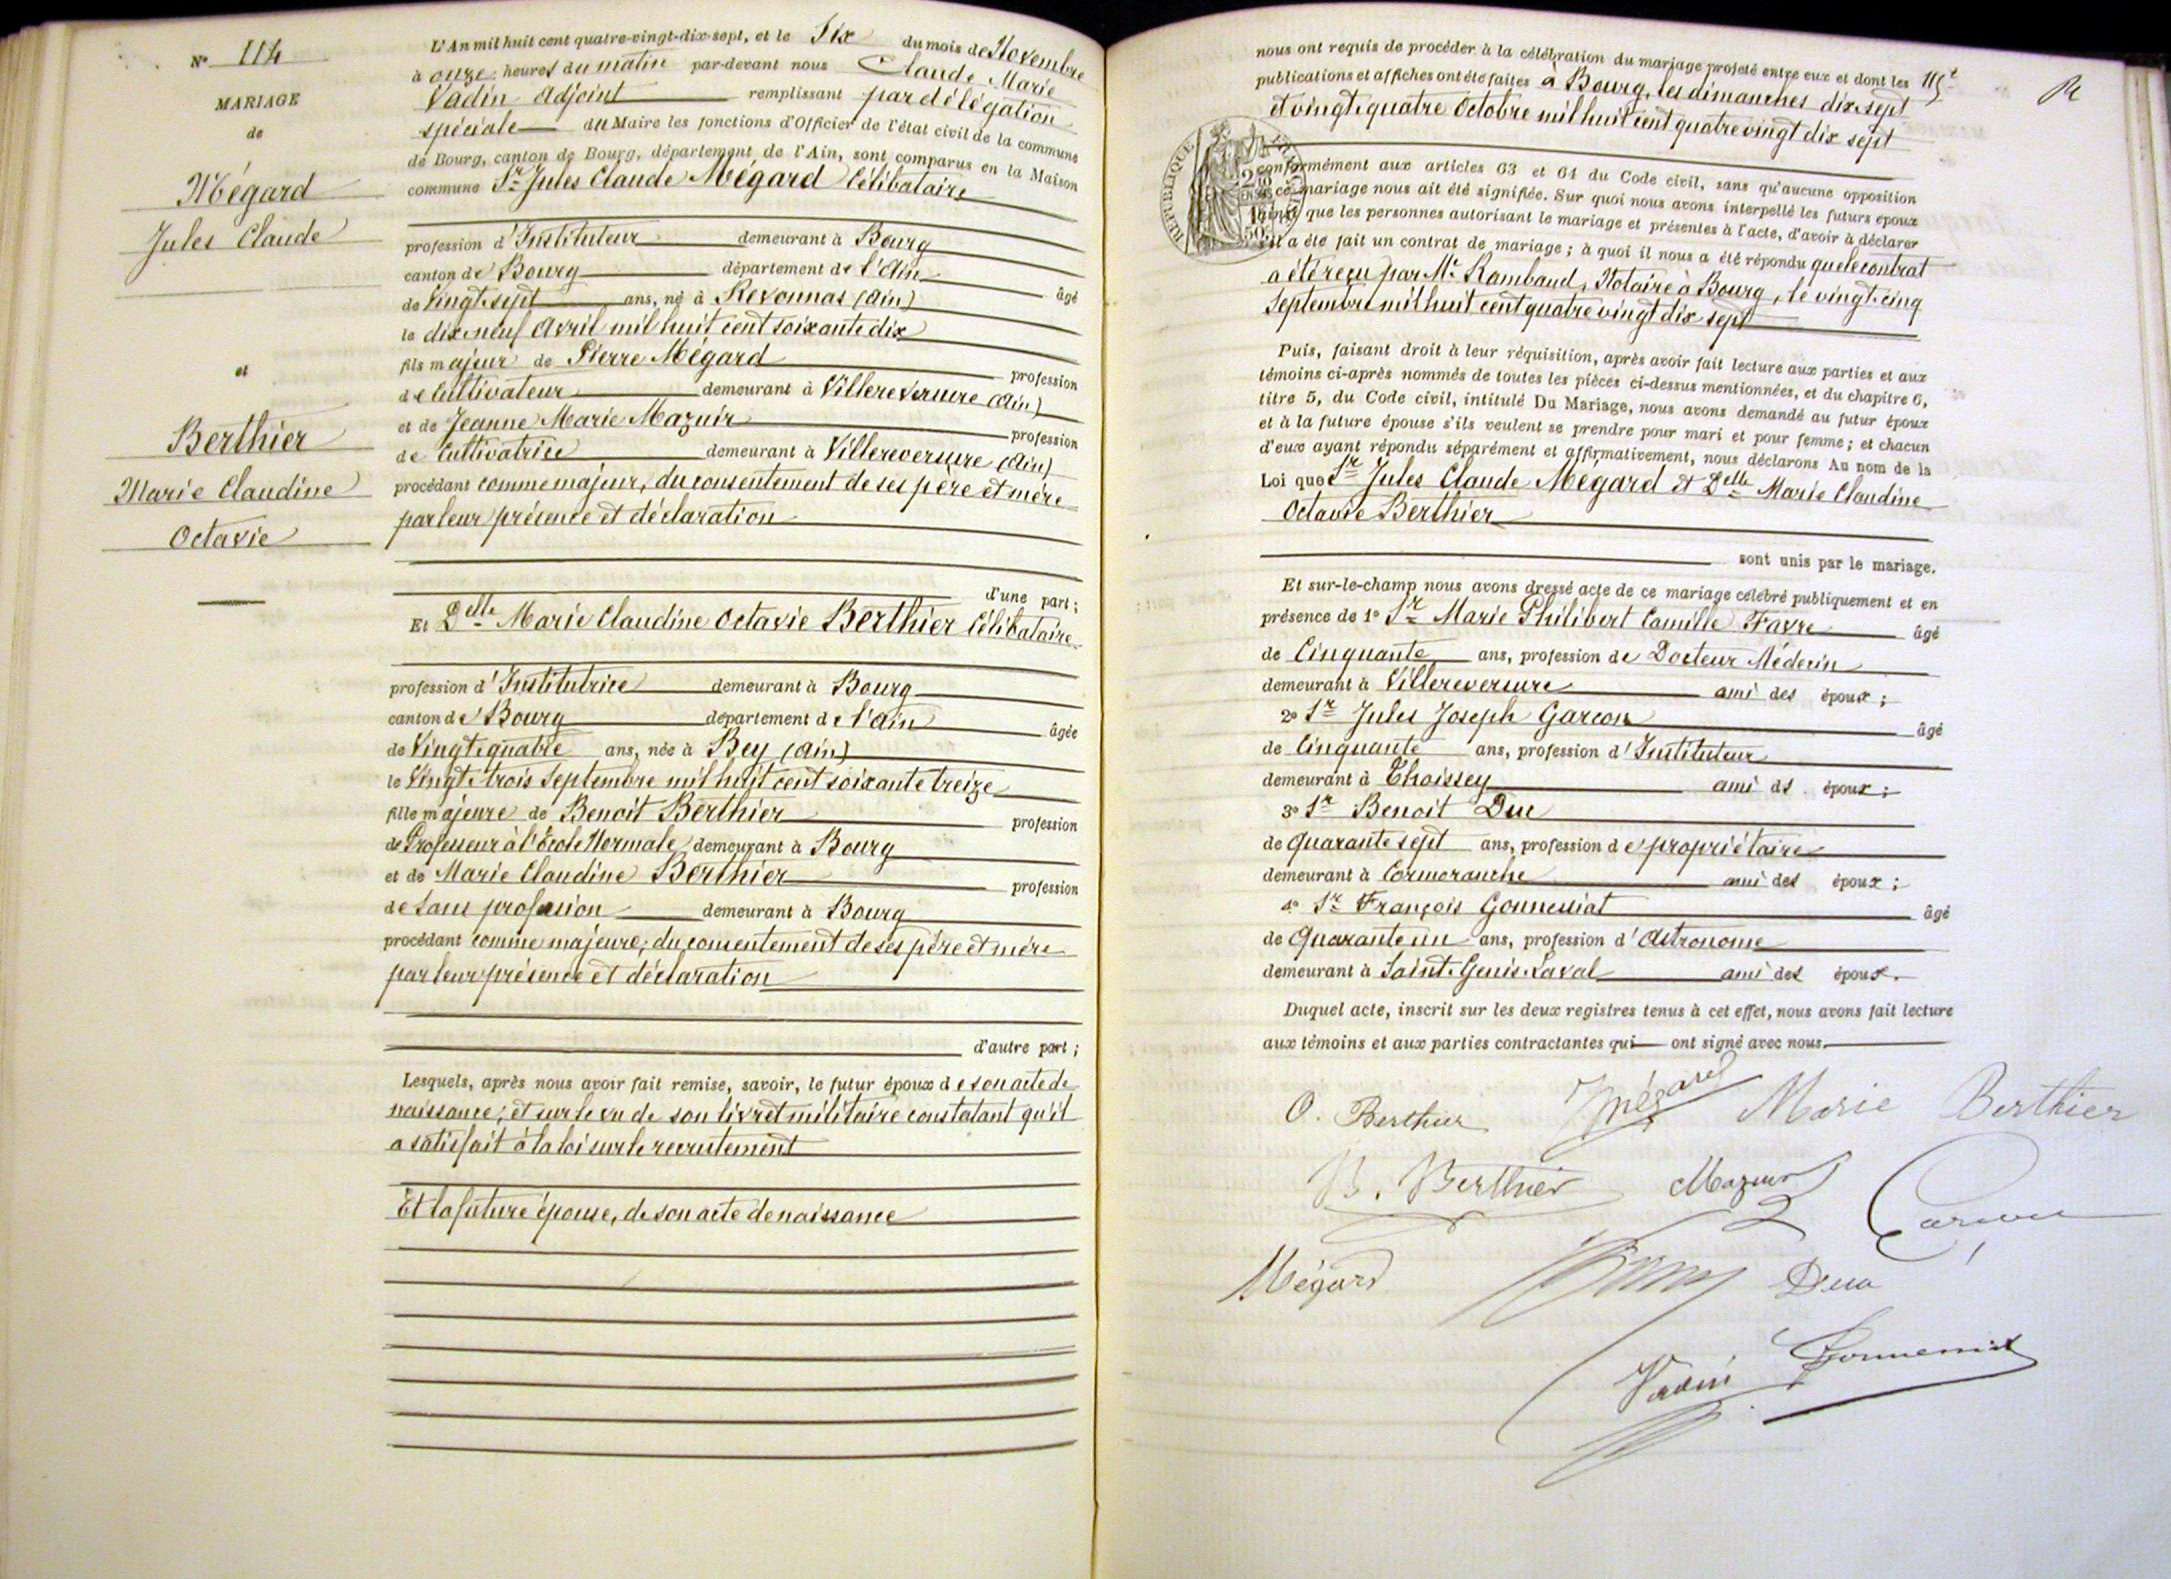 N° 114
MARIAGE
de
Mégard
Jules Claude
et
Berthier
Marie Claudine
Octavie
L'An mil huit cent quatre-vingt-dix-sept, et le Six du mois de Novembre
à onze heures du matin par-devant nous Claude Marie
Vadin Adjoint remplissant par délégation
spéciale du Maire les fonctions d'Officier de l'état civil de la commune
de Bourg, canton de Bourg, département de l'Ain, sont comparus en la Maison
commune Sr Jules Claude Mégard Célibataire
profession d'Instituteur demeurant à Bourg
canton de Bourg département de l'Ain âgé
de Vingt-sept ans, né à Revonnas (Ain)
le dix-neuf Avril mil huit cent soixante dix
fils majeur de Pierre Mégard profession
de Cultivateur demeurant à Villereversure (Ain)
et de Jeanne Marie Mazuir profession
de Cultivatrice demeurant à Villereversure (Ain)
procédant comme majeur, du consentement de ses père et mère
par leur présence et déclaration
d'une part;
Et Delle Marie Claudine Octavie Berthier Célibataire
profession d'Institutrice demeurant à Bourg
canton de Bourg département de l'Ain âgée
de Vingt-quatre ans, née à Bey (Ain)
le Vingt-trois Septembre mil huit cent soixante treize
fille majeure de Benoit Berthier profession
de Professeur à l'École Normale demeurant à Bourg
et de Marie Claudine Berthier profession
de sans profession demeurant à Bourg
procédant comme majeure, du consentement de ses père et mère
par leur présence et déclaration
d'autre part;
Lesquels, après nous avoir fait remise, savoir, le futur époux de son acte de
naissance; et sur le vu de son livret militaire constatant qu'il
a satisfait à la loi sur le recrutement
Et la future épouse, de son acte de naissance
nous ont requis de procéder à la célébration du mariage projeté entre eux et dont les
publications et affiches ont été faites à Bourg, les dimanches dix-sept
et vingt-quatre Octobre mil huit cent quatre vingt dix sept
conformément aux articles 63 et 64 du Code civil, sans qu'aucune opposition
ce mariage nous ait été signifiée. Sur quoi nous avons interpellé les futurs époux
que les personnes autorisant le mariage et présentes à l'acte, d'avoir à déclarer
a été fait un contrat de mariage; à quoi il nous a été répondu que le contrat
a été reçu par Me Rambaud, Notaire à Bourg, le vingt-cinq
Septembre mil huit cent quatre vingt dix sept
Puis, faisant droit à leur réquisition, après avoir fait lecture aux parties et aux
témoins ci-après nommés de toutes les pièces ci-dessus mentionnées, et du chapitre 6,
titre 5, du Code civil, intitulé Du Mariage, nous avons demandé au futur époux
et à la future épouse s'ils veulent se prendre pour mari et pour femme; et chacun
d'eux ayant répondu séparément et affirmativement, nous déclarons Au nom de la
Loi que Sr Jules Claude Mégard et Delle Marie Claudine
Octavie Berthier
sont unis par le mariage.
Et sur-le-champ nous avons dressé acte de ce mariage célébré publiquement et en
présence de 1° Sr Marie Philibert Camille Favre âgé
de Cinquante ans, profession de Docteur Médecin
demeurant à Villereversure ami des époux;
2° Sr Jules Joseph Garçon âgé
de Cinquante ans, profession d'Instituteur
demeurant à Thoissey ami ds époux;
3° Sr Benoit Duc
de quarante sept ans, profession de propriétaire
demeurant à Cormoranche ami des époux;
4° Sr François Gonnessiat âgé
de Quarante un ans, profession d'Astronome
demeurant à Saint-Genis-Laval ami des époux.
Duquel acte, inscrit sur les deux registres tenus à cet effet, nous avons fait lecture
aux témoins et aux parties contractantes qui ont signé avec nous.
O. Berthier Mégard Marie Berthier
B. Berthier Mazuir Garçon
Mégard
Vadin Gonnessiat